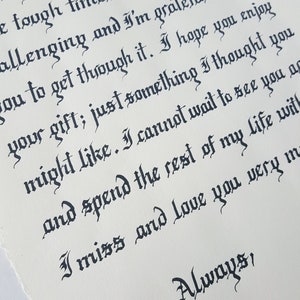 e tough tim
allenging and I'm gratef
you to get through it. I hope you enjoy
your gift; just something I thought you
might like. I cannot wait to see you ag
and spend the rest of my life wit
I miss and love you very m
Always,